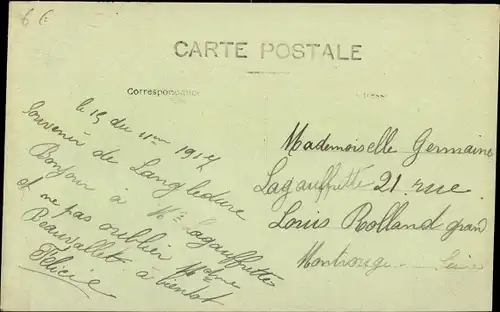 6 f
CARTE POSTALE
Correspondance
Adresse
le 15 du 11me 1917
Souvenir de Langledure
Bonjour à Me Lagauffrette
et ne pas oublier Mdme
Beauvallet à bientôt
Félicie
Mademoiselle Germaine
Lagauffrette 21 rue
Louis Rolland gran
Montrouge Seine